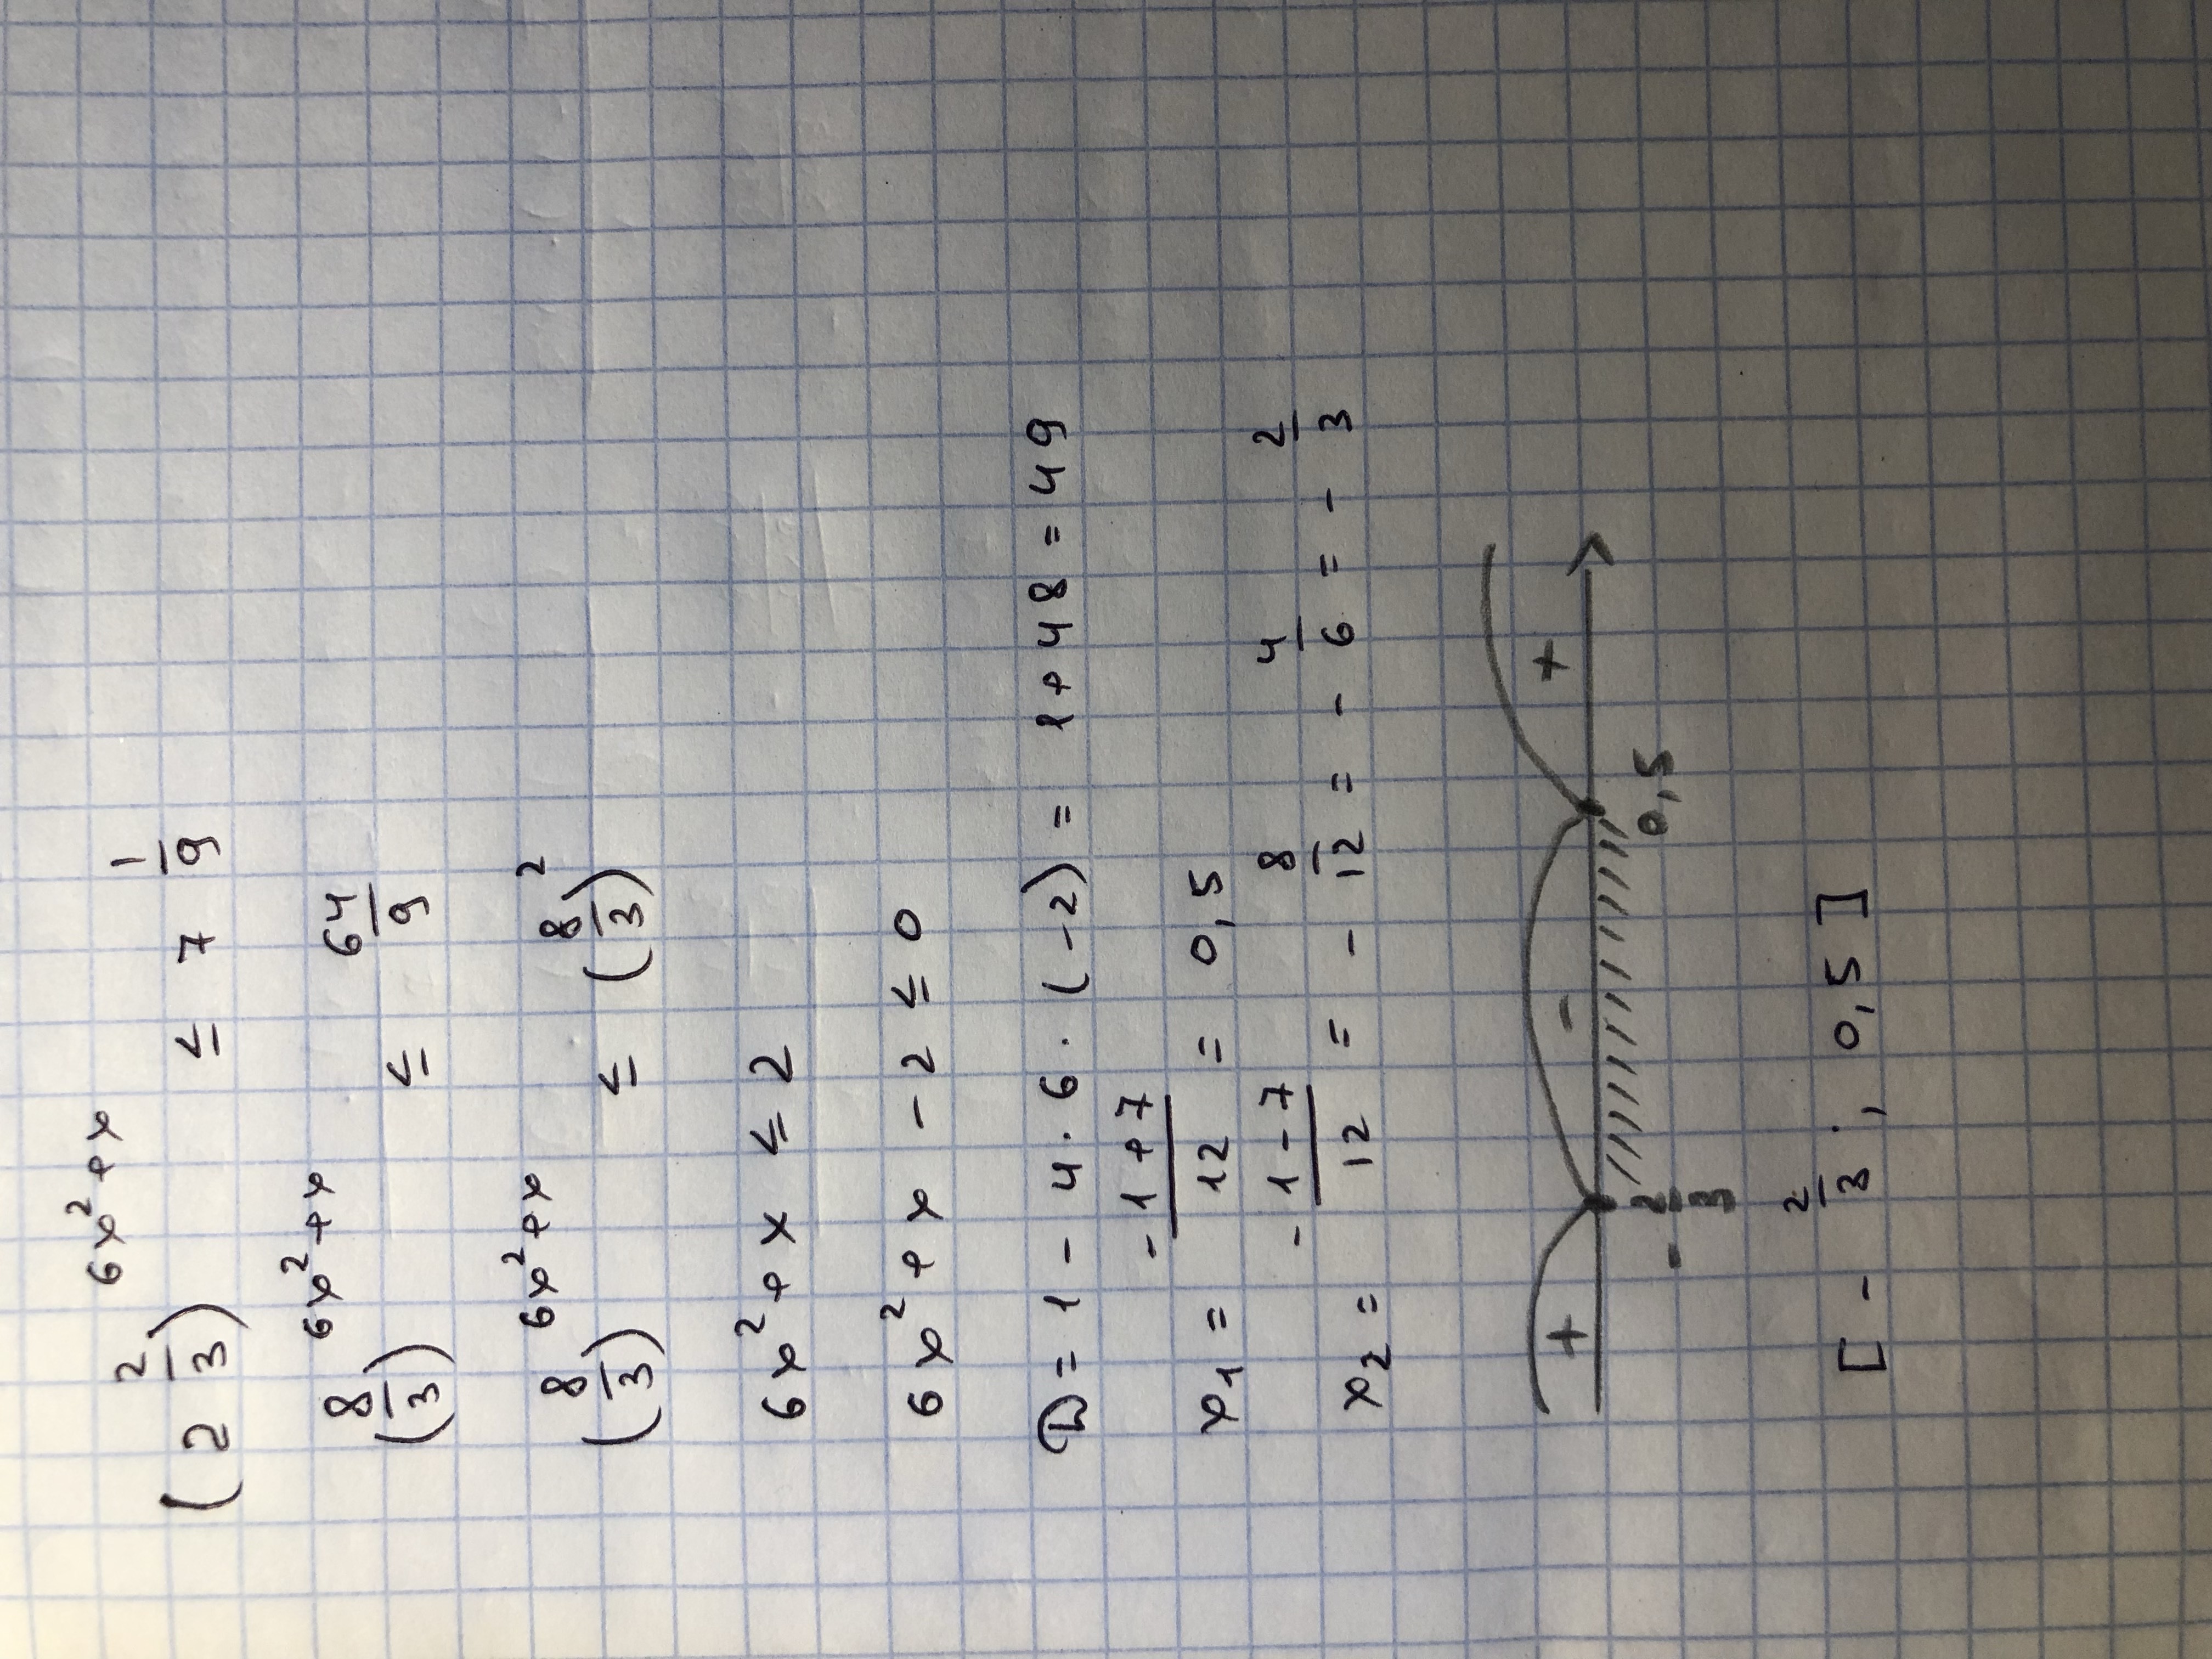 (2 2/3)^(6x²+x) ≤ 7 1/9
(8/3)^(6x²+x) ≤ 64/9
(8/3)^(6x²+x) ≤ (8/3)²
6x²+x ≤ 2
6x²+x - 2 ≤ 0
D = 1 - 4 · 6 · (-2) = 1 + 48 = 49
x₁ = (-1+7)/12 = 0,5
x₂ = (-1-7)/12 = - 8/12 = - 4/6 = - 2/3
+ - +
- 2/3 0,5
[ - 2/3 ; 0,5 ]